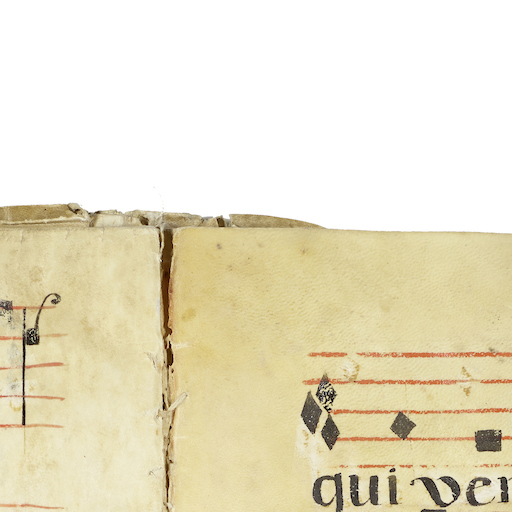 qui ven